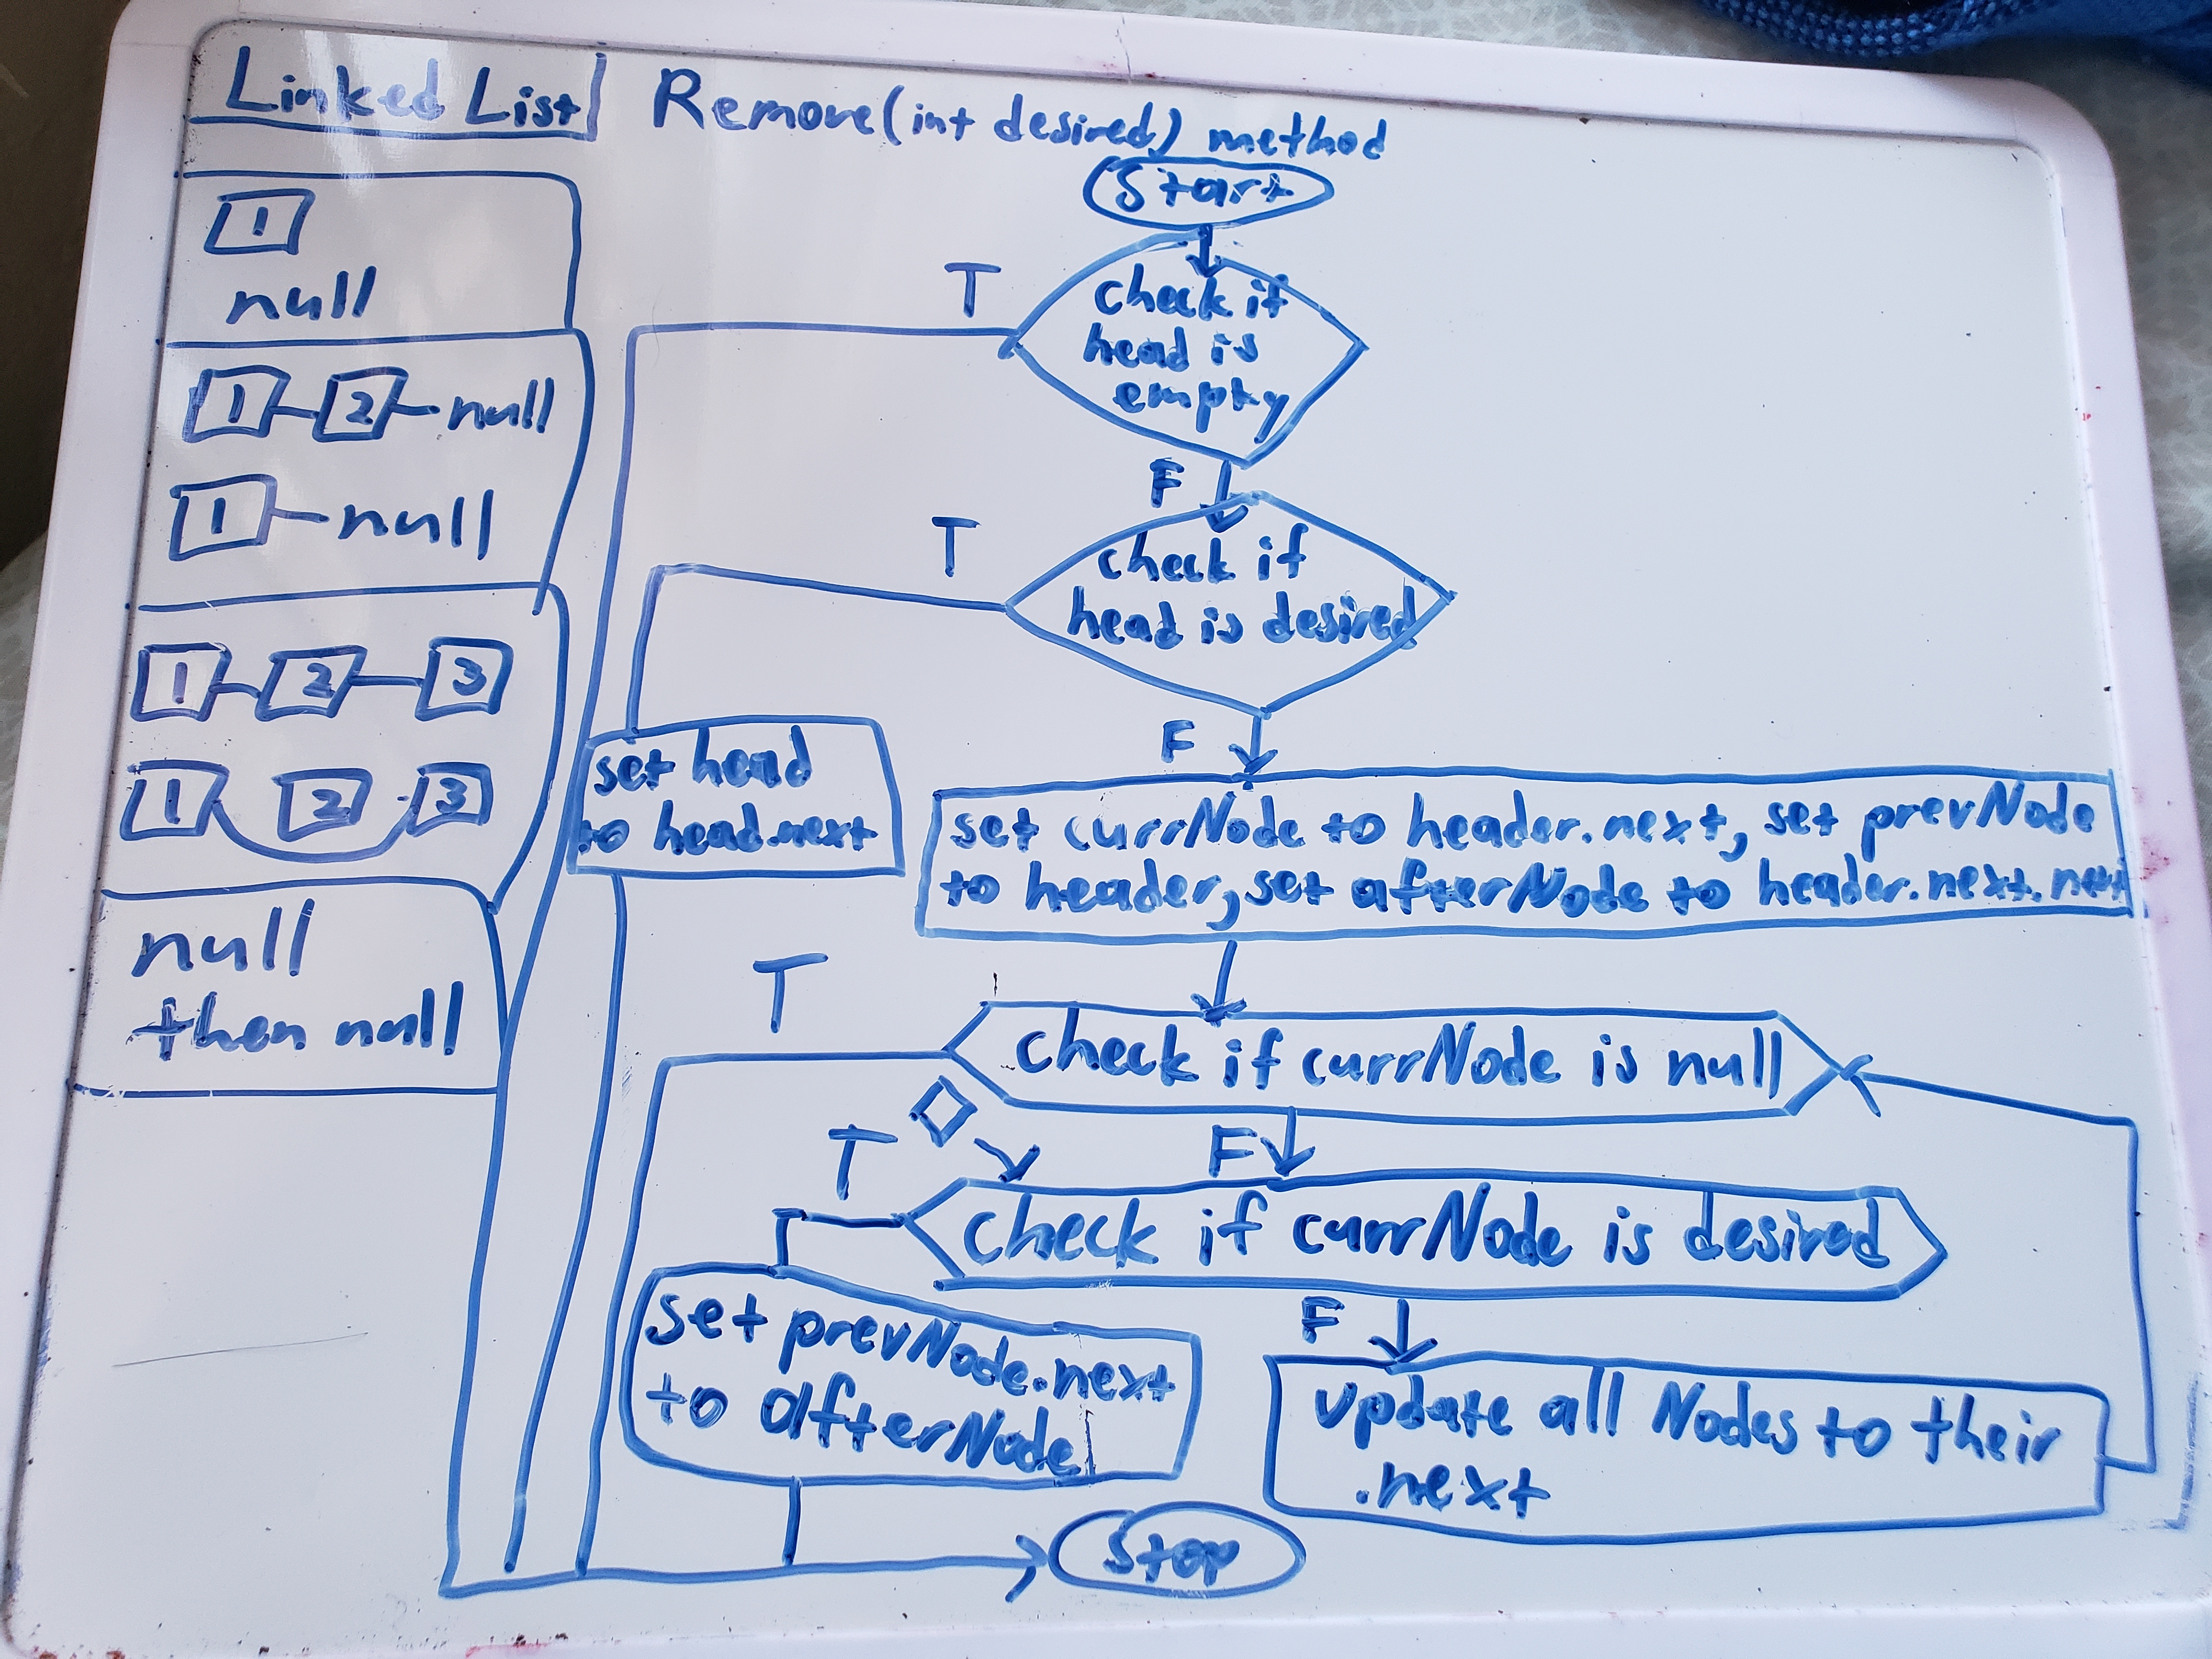 Linked List
Remove(int desired) method
1
null
1 2 null
1 null
1 2 3
1 2 3
null
then null
Start
T
check if
head is
empty
F
T
check if
head is desired
F
set head
to head.next
set currNode to header.next, set prevNode
to header, set afterNode to header.next.next
T
check if currNode is null
T
F
check if currNode is desired
set prevNode.next
to afterNode
F
update all Nodes to their
.next
Stop